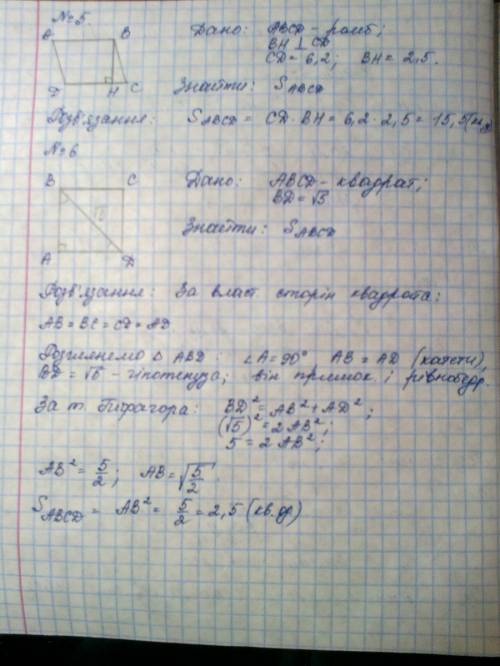 №5.
A B Дано: ABCD - ромб;
BH ⊥ CD
CD = 6,2; BH = 2,5.
D H C Знайти: S ABCD
Розв'язання: S ABCD = CD · BH = 6,2 · 2,5 = 15,5
№6
B C Дано: ABCD - квадрат;
BD = √5
Знайти: S ABCD
A D
Розв'язання: За власт. сторін квадрата:
AB = BC = CD = AD
Розглянемо Δ ABD: ∠A = 90° AB = AD (катети),
BD = √5 - гіпотенуза; він прямок. і рівнобедр.
За т. Піфагора: BD² = AB² + AD²;
(√5)² = 2AB²;
5 = 2AB²;
AB² = 5/2; AB = √5/2.
S ABCD = AB² = 5/2 = 2,5 (кв.др)